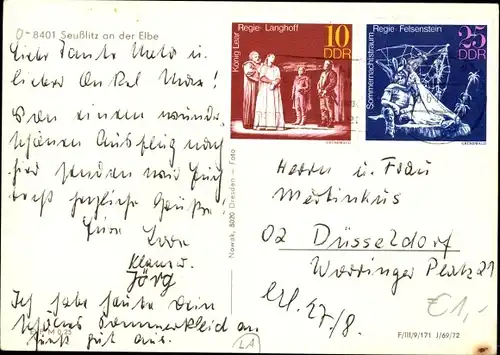 O- 8401 Seußlitz an der Elbe
Liebe Tante Meta u.
lieber Onkel Max!
Von einem wunder-
schönen Ausflug nach
hier senden wir Euch
herzliche Grüße!
Eure Lore
Klaus u.
Jörg
Ich habe heute Dein
schönes Sommerkleid an
gut aus.
M 0,25
LA
Nowak, 8020 Dresden – Foto
König Lear
Regie · Langhoff
10
DDR
GRÜNEWALD
Sommernachtstraum
Regie · Felsenstein
25
DDR
GRÜNEWALD
Herrn u. Frau
Mertinkus
02 Düsseldorf
Worringer Platz 21
erl. 27/8.
€ 1,-
F/III/9/171 J/69/72